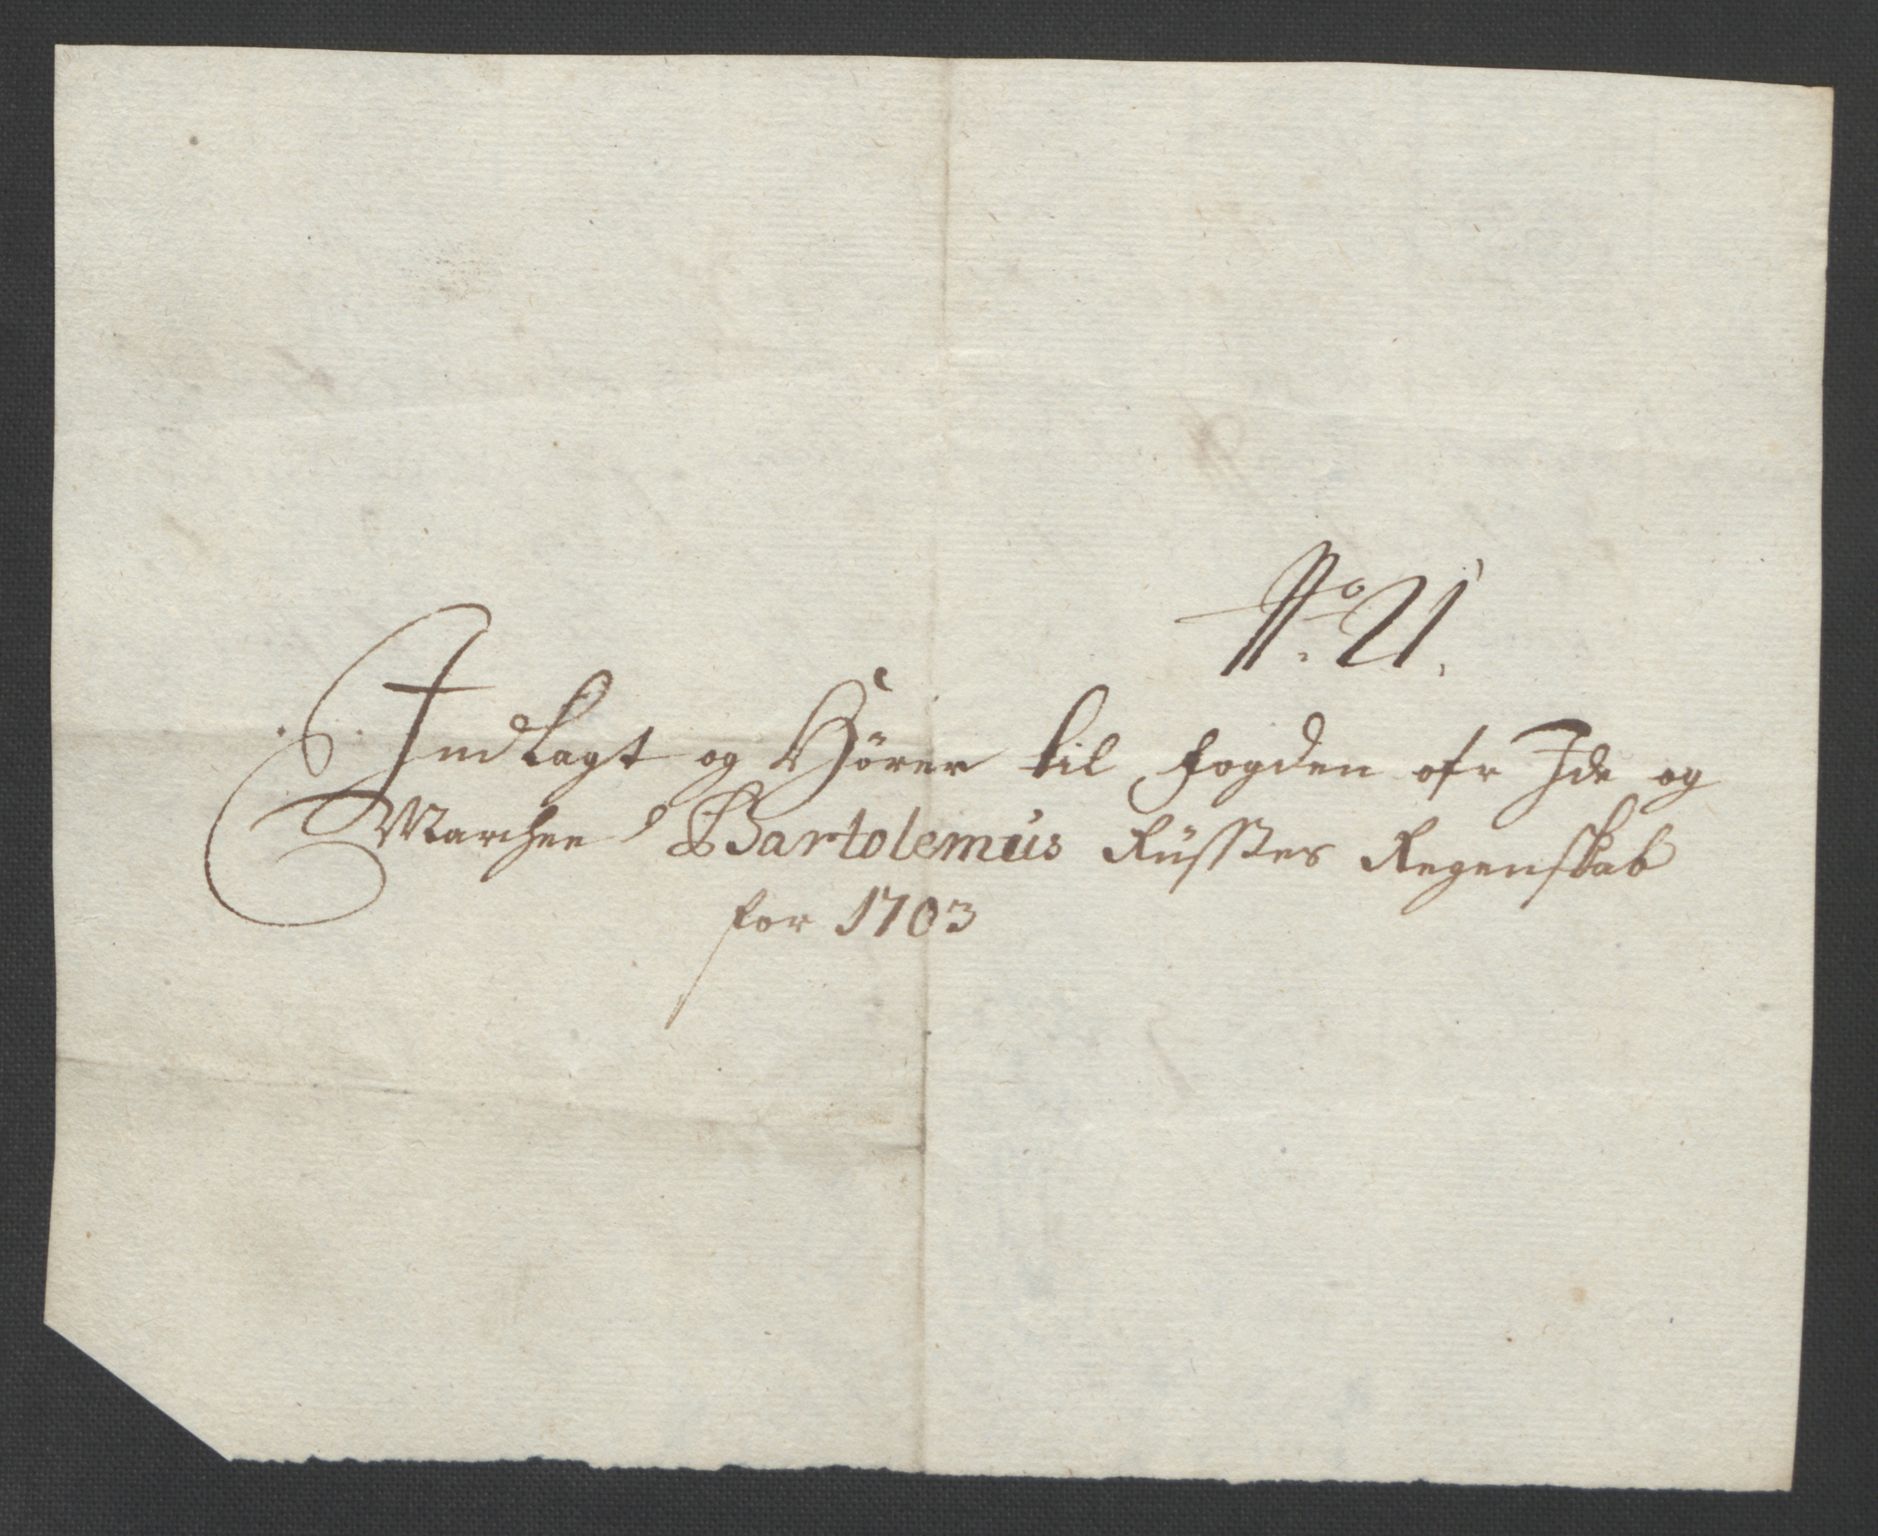 No. 21.
Indlagt og Hörer til fogden ofr Ide og
Marchee Bartolemus Rüsstes Regenskab
for 1703